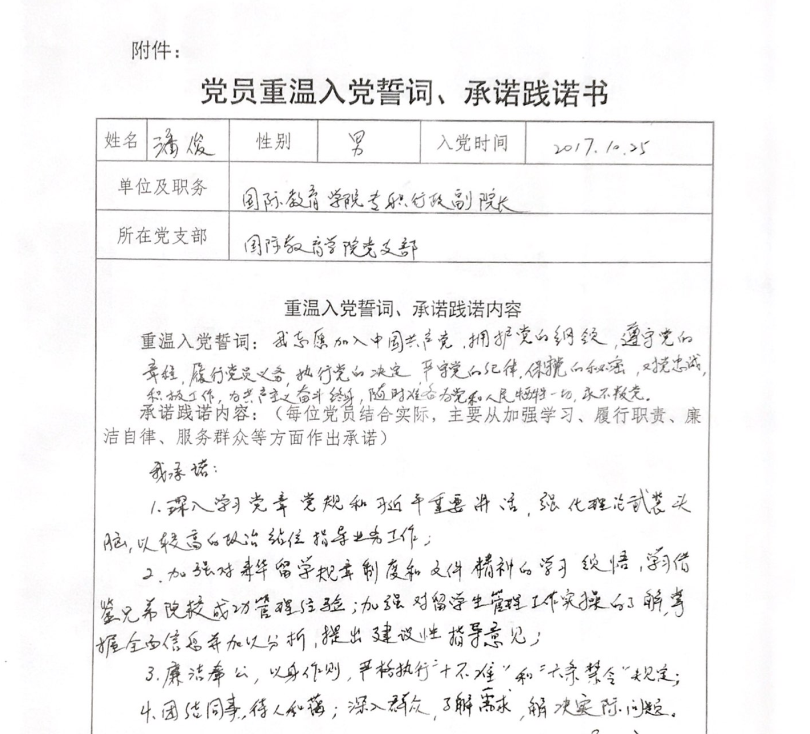 附件：
党员重温入党誓词、承诺践诺书
姓名 潘俊 性别 男 入党时间 2017.10.25
单位及职务 国际教育学院专职行政副院长
所在党支部 国际教育学院党支部
重温入党誓词、承诺践诺内容
重温入党誓词：我志愿加入中国共产党，拥护党的纲领，遵守党的
章程，履行党员义务，执行党的决定，严守党的纪律，保守党的秘密，对党忠诚，
积极工作，为共产主义奋斗终身，随时准备为党和人民牺牲一切，永不叛党。
承诺践诺内容：（每位党员结合实际，主要从加强学习、履行职责、廉
洁自律、服务群众等方面作出承诺）
我承诺：
1.深入学习党章党规和习近平重要讲话，强化理论武装头
脑，以较高的政治站位指导业务工作；
2.加强对来华留学规章制度和文件精神的学习领悟，学习借
鉴兄弟院校成功管理经验；加强对留学生管理工作实操的了解，掌
握全面信息并加以分析，提出建议性指导意见；
3.廉洁奉公，以身作则，严格执行“十不准”和“六条禁令”规定；
4.团结同事，待人和蔼；深入群众，了解需求，解决实际问题。